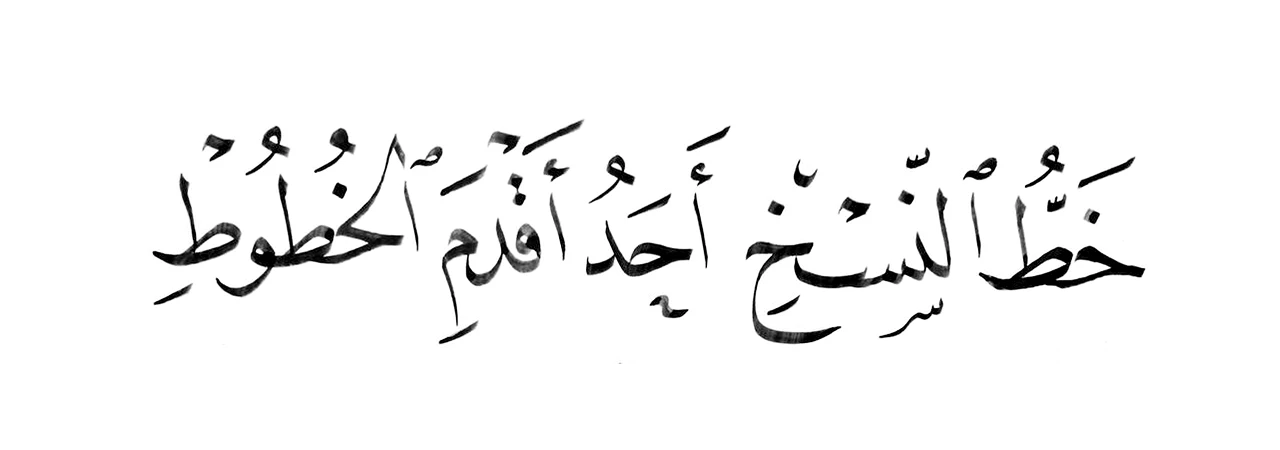 خَطُّ ٱلنَّسْخِ أَحَدُ أَقْدَمِ ٱلخُطُوطِ